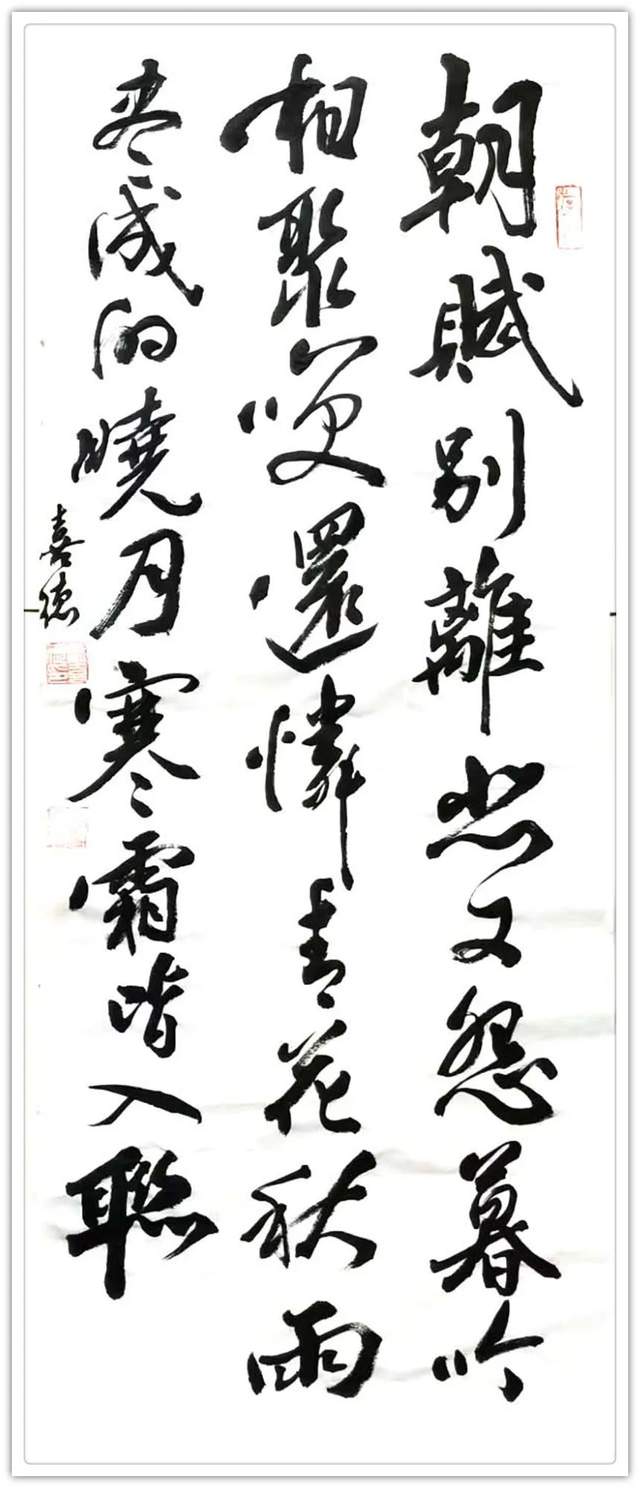 朝賦別離悲又怨暮吟
相聚哽還憐春花秋雨
尽成曉月寒霜皆入聯
喜德